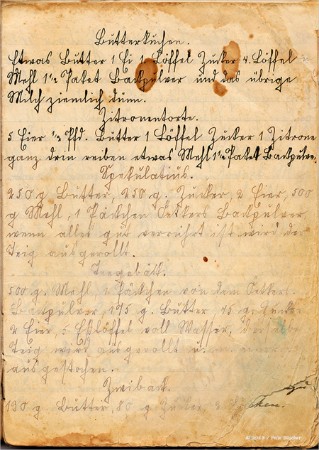 Butterkuchen.
Etwas Butter 1 Ei 1 Löffel Zucker 4 Löffel
Mehl 1/2 Paket Backpulver und das übrige
Milch ziemlich dünn.
Zitronentorte.
5 Eier 1/2 Pfd. Butter 1 Löffel Zucker 1 Zitrone
ganz drin reiben etwas Mehl 1/2 Paket Backpulver.
Spekulatius.
250 g. Butter, 250 g. Zucker, 2 Eier, 500
g Mehl, 1 Päckchen Oetkers Backpulver
wenn alles gut verrührt ist wird der
Teig ausgerollt.
Teegebäck.
500 g. Mehl, 1 Päckchen von dem Oetker
Backpulver 175 g. Butter 75 g. Zucker
2 Eier, Esslöffel voll Wasser, der
Teig wird ausgerollt u.
ausgestochen.
Zwieback.
130 g Butter, 80 g